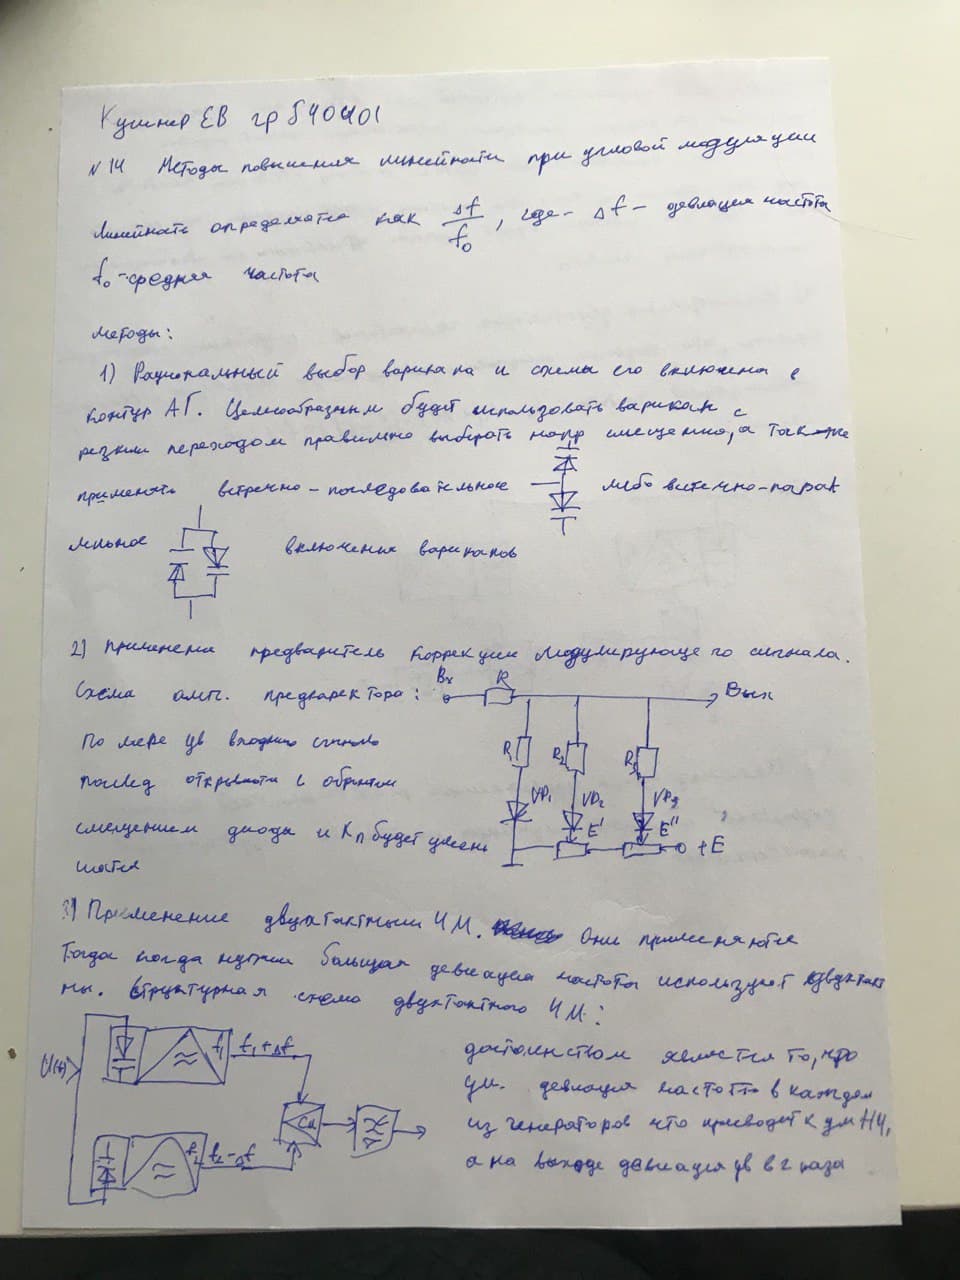 Кушнер ЕВ гр 540401
№ 14 Методы повышения линейности при угловой модуляции
Линейность определяется как Δf/f₀, где - Δf - девиация частоты
f₀ - средняя частота
Методы:
1) Рациональный выбор варикапа и схемы его включения в
контур АГ. Целесообразным будет использовать варикап с
резким переходом правильно выбирать напр смещению, а также
применять встречно - последовательное либо встечно-парал
лельное включения варикапов
2) Применени предваритель коррекции модулирующего сигнала.
Схема амп. предкаректора:
Вх R Вых
R₁ R₂ R₃
VD₁ VD₂ VD₃
E' E'' +E
По мере ув входного сигнала
послед открываются с обратным
смещением диоды и Kп будет умень
шатся
3) Применение двухтактных ЧМ. Они применяются
Тогда когда нужна большая девиация частоты используют двухтакт
ны. Структурная схема двухтактного ЧМ:
U(t) f₁ f₁+Δf
См
f₂ f₂-Δf
достоинством является то, что
ум. девиация частоты в каждом
из генераторов что приводет к ум НЧ,
а на выходе девиация ув в 2 раза